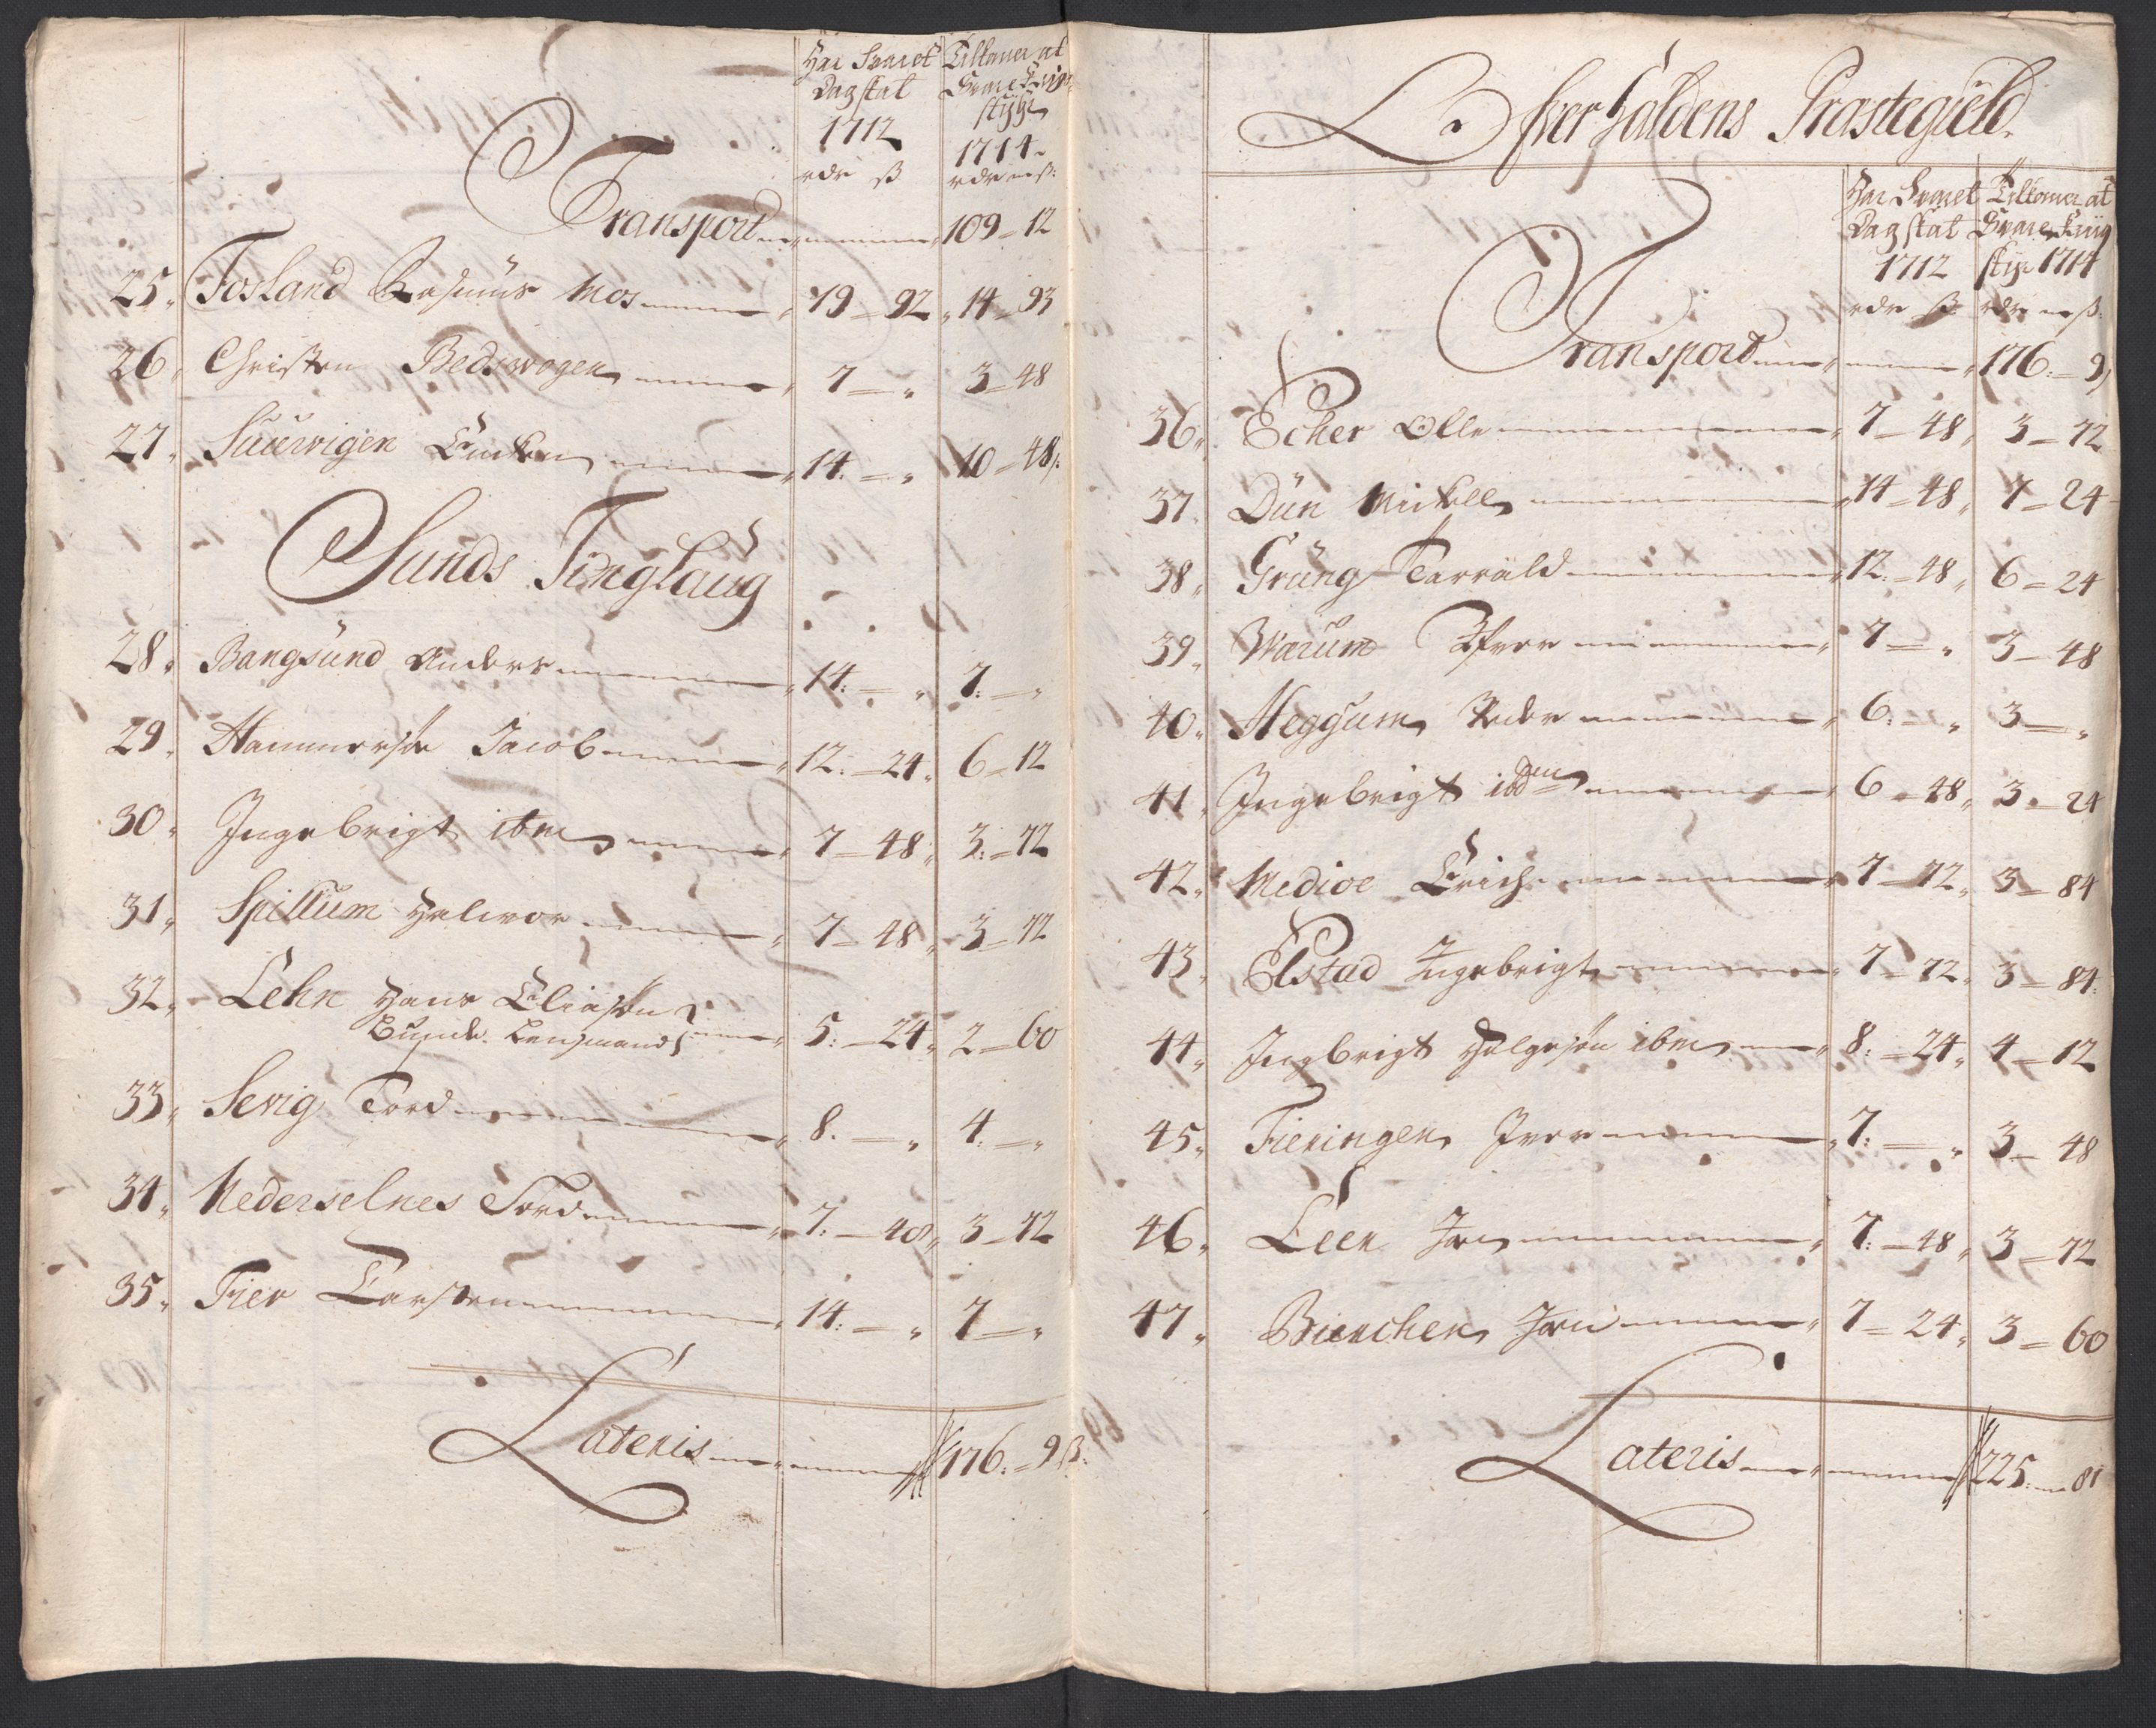 Har Svaret Tilkomer at
Dagskat Svare Krigs
styhr
1712 1714
rdr ß rdr ß:
Transport 109 - 12
25. Fosland Rasmus Mos 19 - 92 14 - 93
26. Christen Bedswogen 7 - " 3 - 48
27. Suurvigen 14 - " 10 - 48
Sunds Tinglaug
28. Bangsund Anders 14: - " 7: - "
29. Hammersøe Jacob 12: - 24 6 - 12
30. Ingebrigt ibm 7 - 48 3: - 72
31. Spillum Halvor 7 - 48 3 - 72
32. Lehn Hans Eliasøn
Bunde Lensmand 5: - 24 2 - 60
33. Sevig Tord 8. - " 4. - "
34. Nederselnes Tord 7: - 48 3 - 72
35. Fier Carsten 14: - " 7 - "
Lateris 176: - 9 ß:
Ofver Haldens Præstegield.
Har Svaret Tilkomer at
Dagskat Svare Krig
1712 styr 1714
rdr ß rdr ß:
Transport 176: - 9
36. Echer Olle 7 - 48 3 - 72
37. Duun Mickell 14 - 48 7 - 24
38. Grüng Tarrald 12: - 48 6 - 24
39. Warum Ifver 7 - " 3 - 48
40. Heggum Peder 6: - " 3 - "
41. Ingebrigt ibdem 6 - 48 3 - 24
42. Medioe Erich 7 - 72 3 - 84
43. Elstad Ingebrigt 7 - 72 3 - 84:
44. Ingbrigt Helgesøn ibm 8: - 24 4 - 12
45. Fieringen Iver 7: - " 3 - 48
46. Leen Jon 7: - 48 3 - 72
47. Biencher Jon 7 - 24 3 - 60
Lateris 225: - 81